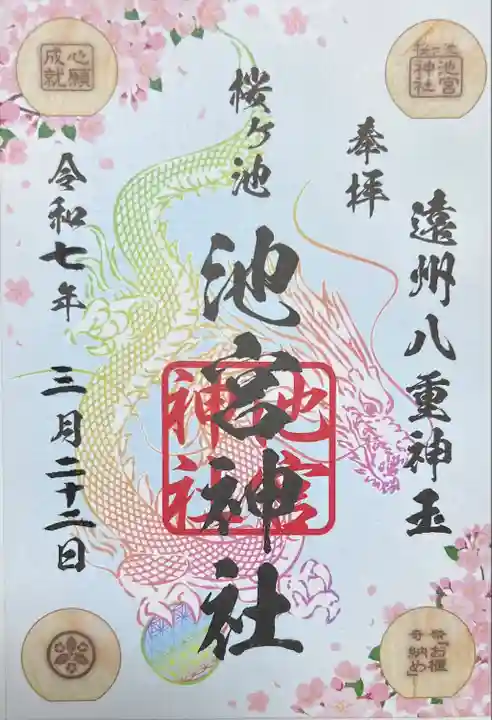 遠州八重神玉
奉拝
桜ヶ池
池宮神社
令和七年 三月二十二日
池宮
神社
心願
成就
池宮
神社
奇祭「お櫃
納め」